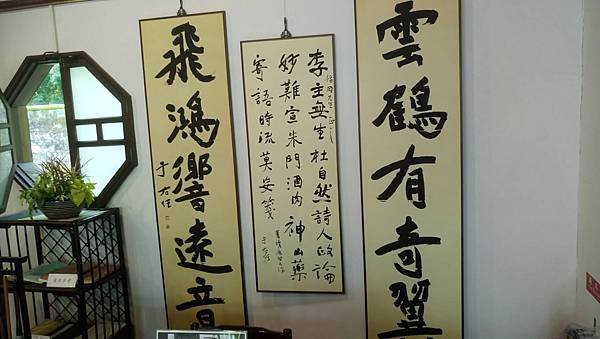 雲鶴有奇翼
李主無生杜自然詩人政論
妙難宣朱門酒肉神山藥
寄語時流莫妄箋
于右任
飛鴻響遠音
于右任